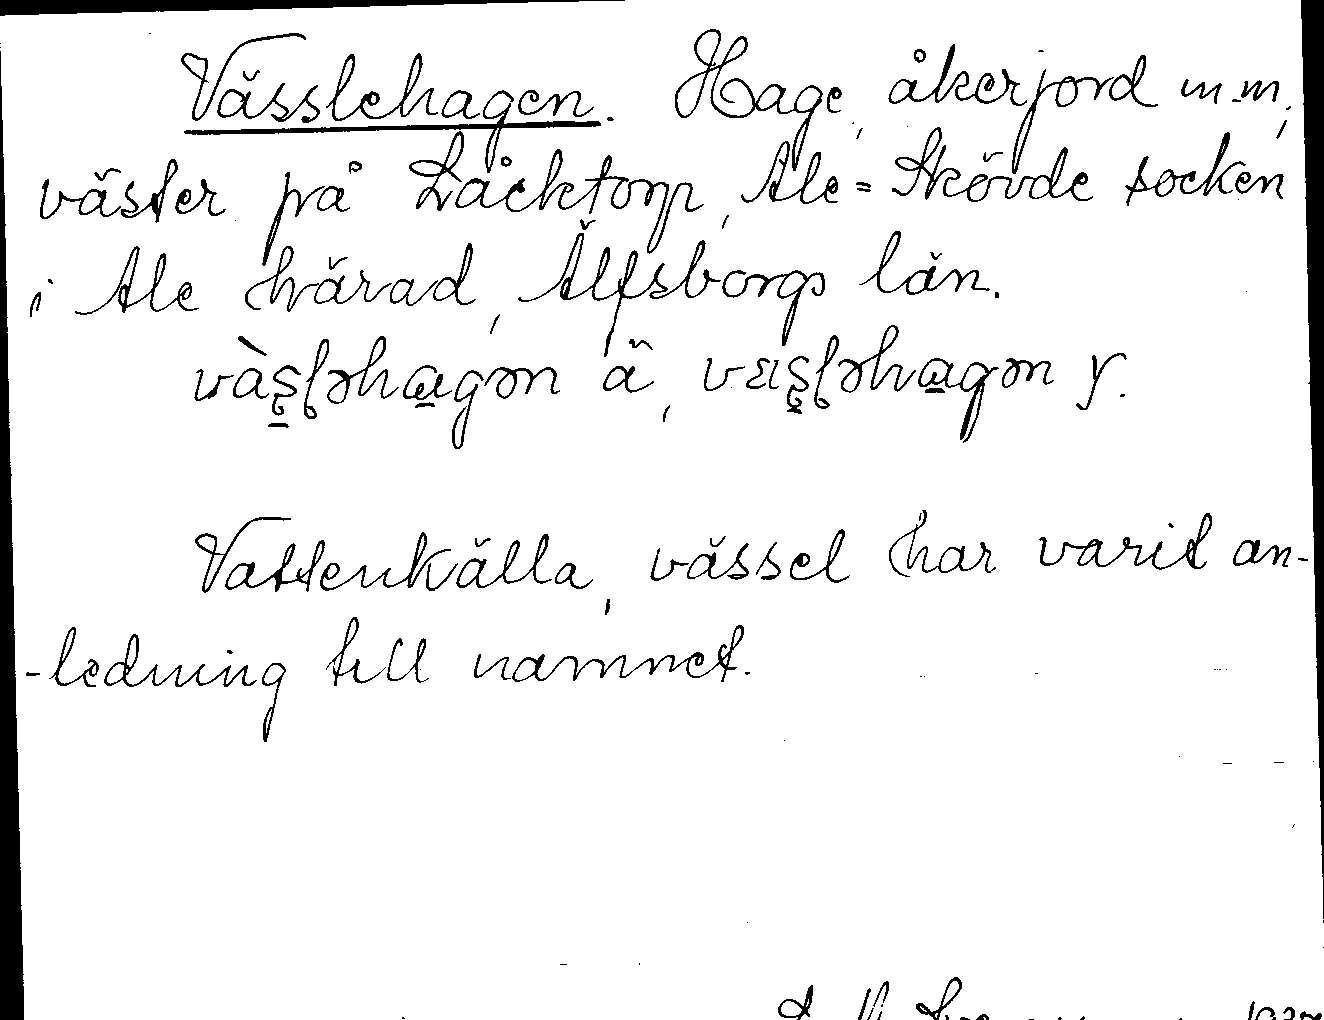 Vässlehagen. Hage, åkerjord m.m,
väster på Låcktorp, Ale=Skövde socken
i Ale härad, Älfsborgs län.
Vattenkälla, vässel har varit an-
-ledning till namnet.